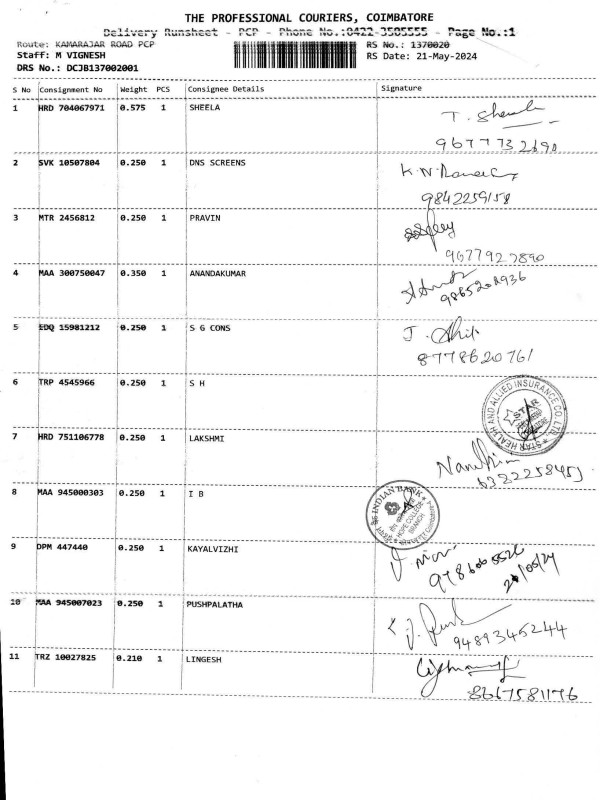 THE PROFESSIONAL COURIERS, COIMBATORE
Delivery Runsheet - PCP - Phone No.:0422-3505555 - Page No.:1
Route: KAMARAJAR ROAD PCP
RS No.: 1370020
Staff: M VIGNESH
RS Date: 21-May-2024
DRS No.: DCJB137002001
S No Consignment No Weight PCS Consignee Details Signature
1 HRD 704067971 0.575 1 SHEELA
T. Sheela
2 SVK 10507804 0.250 1 DNS SCREENS
9842259158
3 MTR 2456812 0.250 1 PRAVIN
9677927890
4 MAA 300750047 0.350 1 ANANDAKUMAR
5 EDQ 15981212 0.250 1 S G CONS
8778620761
6 TRP 4545966 0.250 1 S H
STAR HEALTH AND ALLIED INSURANCE CO. LTD.
STAR
7 HRD 751106778 0.250 1 LAKSHMI
8 MAA 945000303 0.250 1 I B
INDIAN BANK
HOPE COLLEGE
BRANCH
9 DPM 447440 0.250 1 KAYALVIZHI
10 MAA 945007023 0.250 1 PUSHPALATHA
9489345244
11 TRZ 10027825 0.210 1 LINGESH
8667581176